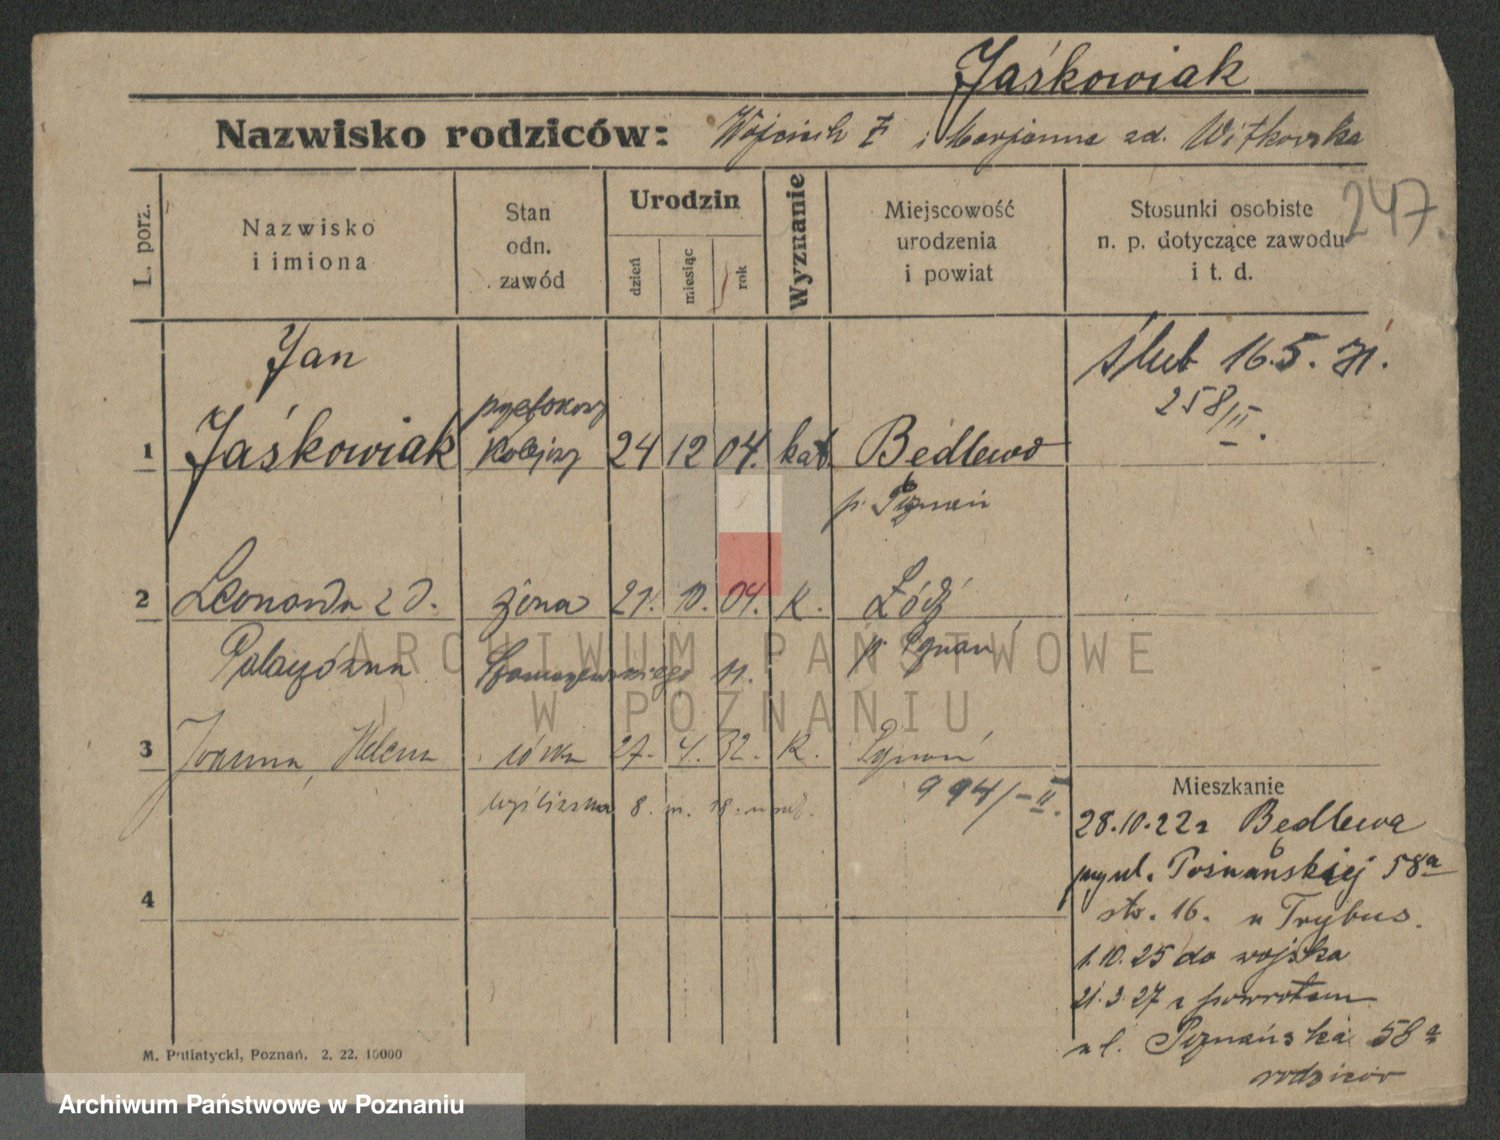 Jaśkowiak
Nazwisko rodziców: Wojciech i Marjanna zd. Witkowska
247.
L. porz.
Nazwisko i imiona
Stan odn. zawód
Urodzin
dzień
miesiąc
rok
Wyznanie
Miejscowość urodzenia i powiat
Stosunki osobiste n. p. dotyczące zawodu i t. d.
Jan
ślub 16.5.31.
258/II.
1 Jaśkowiak kolejowy 24 12 04. kat. Bedlewo
p. Poznań
2 Leonarda zd. żona 21. 10. 04. k. Łódź
p. Poznań
11.
3 Joanna, Helena córka 27. 4. 32. k. Poznań
8. m. 18.
994/-II.
Mieszkanie
28.10.22 z Bedlewa
przy ul. Poznańskiej 58a
str. 16. u Trybus.
4
1.10.25 do wojska
21.3.27 z powrotem
ul. Poznańska 58a
rodziców
M. Putiatycki, Poznań. 2. 22. 10000
ARCHIWUM PAŃSTWOWE
W POZNANIU
Archiwum Państwowe w Poznaniu